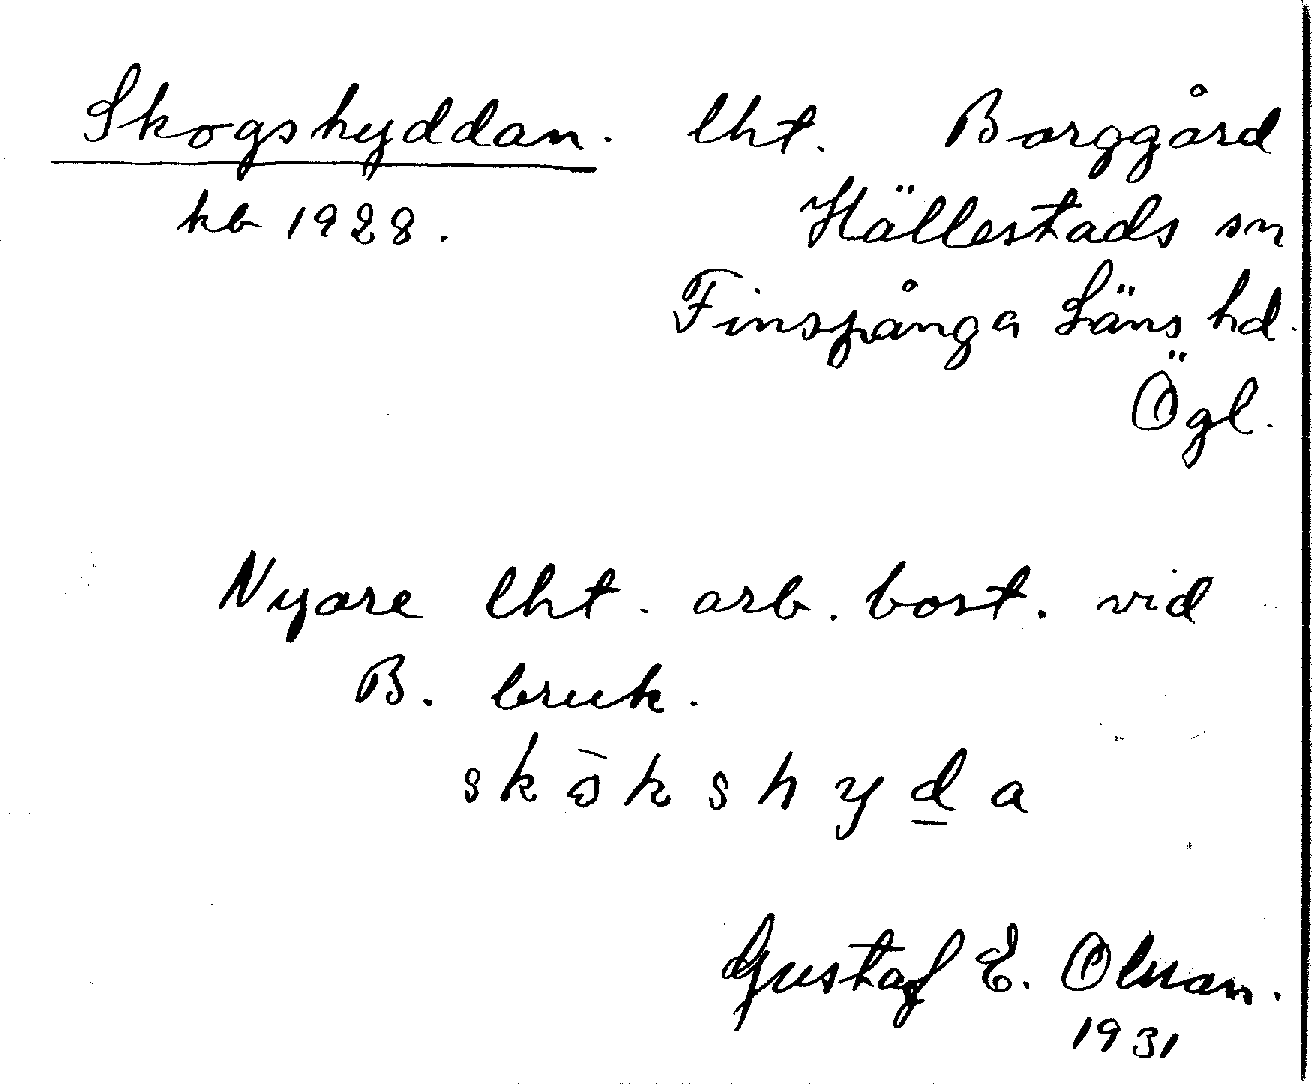 Skogshyddan. lht. Borggård
kb 1928. Hällestads sn
Finspånga Läns hd.
Ögl.
Nyare lht. arb. bost. vid
B. bruk.
Gustaf E. Olsson.
1931